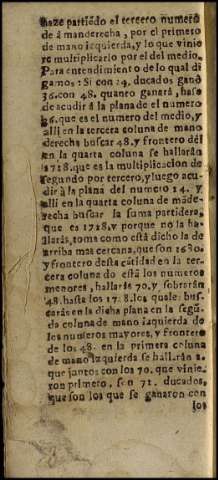 haze partiédo el tercero numero
de á manderecha, por el primero
de mano izquierda, y lo que vinie
re multiplicarlo por el del medio.
Para entendimiento de lo qual di
gamos: Si con 24. ducados ganò
36. con 48. quanto ganará, hase
de acudir á la plana de el numero
36. que es el numero del medio, y
alli en la tercera coluna de mano
derecha buscar 48. y frontero dél
en la quarta coluna se hallarán
1728. que es la multiplicacion de
segundo por tercero, y luego acu-
dir à la plana del numero 24. y
alli en la quarta coluna de máde-
recha buscar la suma partidera,
que es 1728. y porque no la ha-
llarás, toma como está dicho la de
arriba mas cercana, que son 1680.
y frontero desta cátidad en la ter-
cera coluna do está los numeros
menores, hallarás 70. y sobrarán
48. hasta los 17 8. los quales bus-
carás en la dicha plana en la segú
da coluna de mano izquierda de
los numeros mayores, y frontero
de los 48. en la primera coluna
de mano izquierda se hallarán 2.
que juntos con los 70. que vinie-
ron primero, son 72. ducados,
que son los que se ganaron con
los